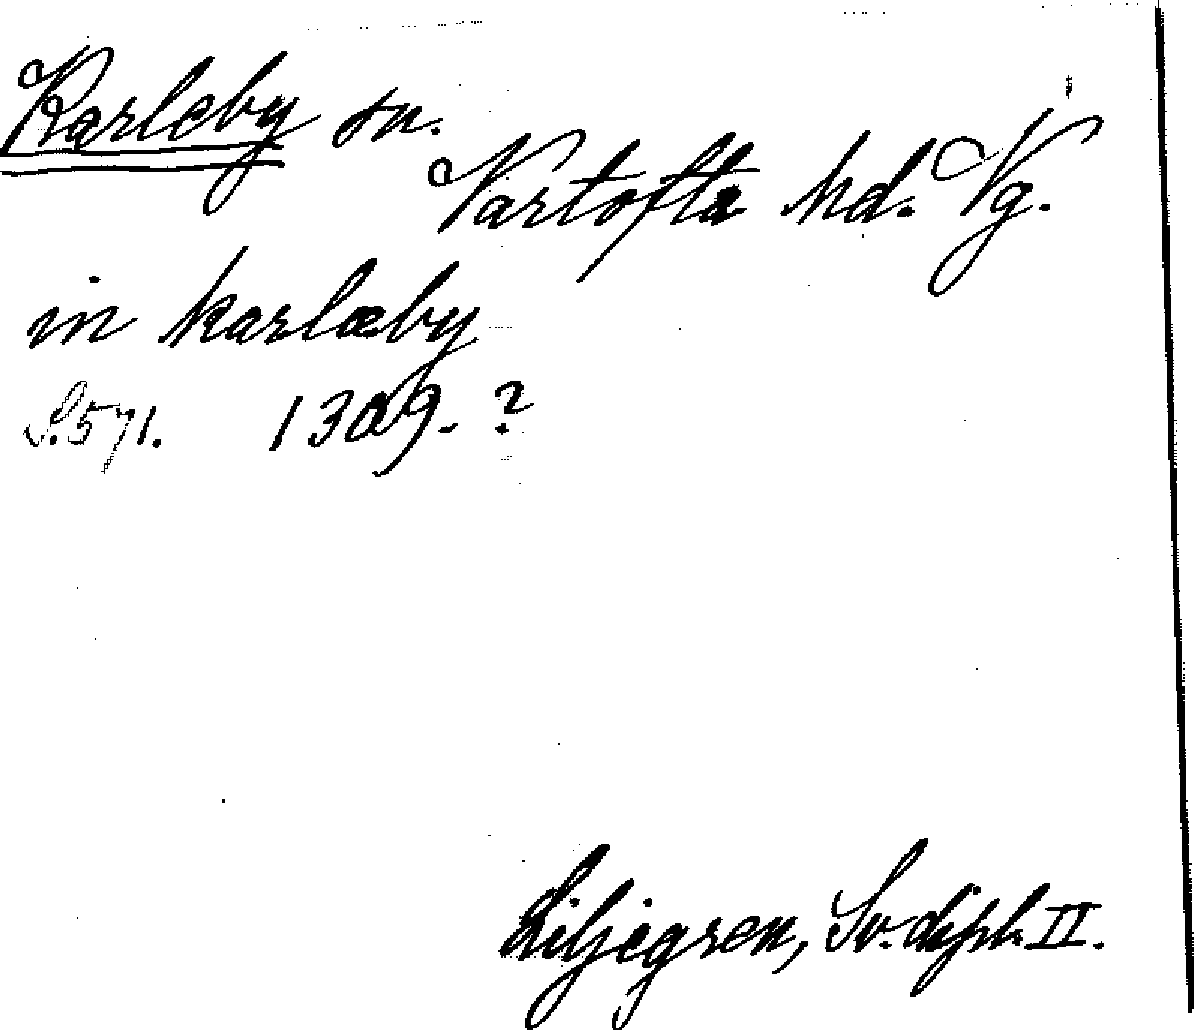 Karleby sn.
Vartofta hd. Vg.
in karlæby
S. 571. 1309. ?
Liljegren, Sv. dipl. II.